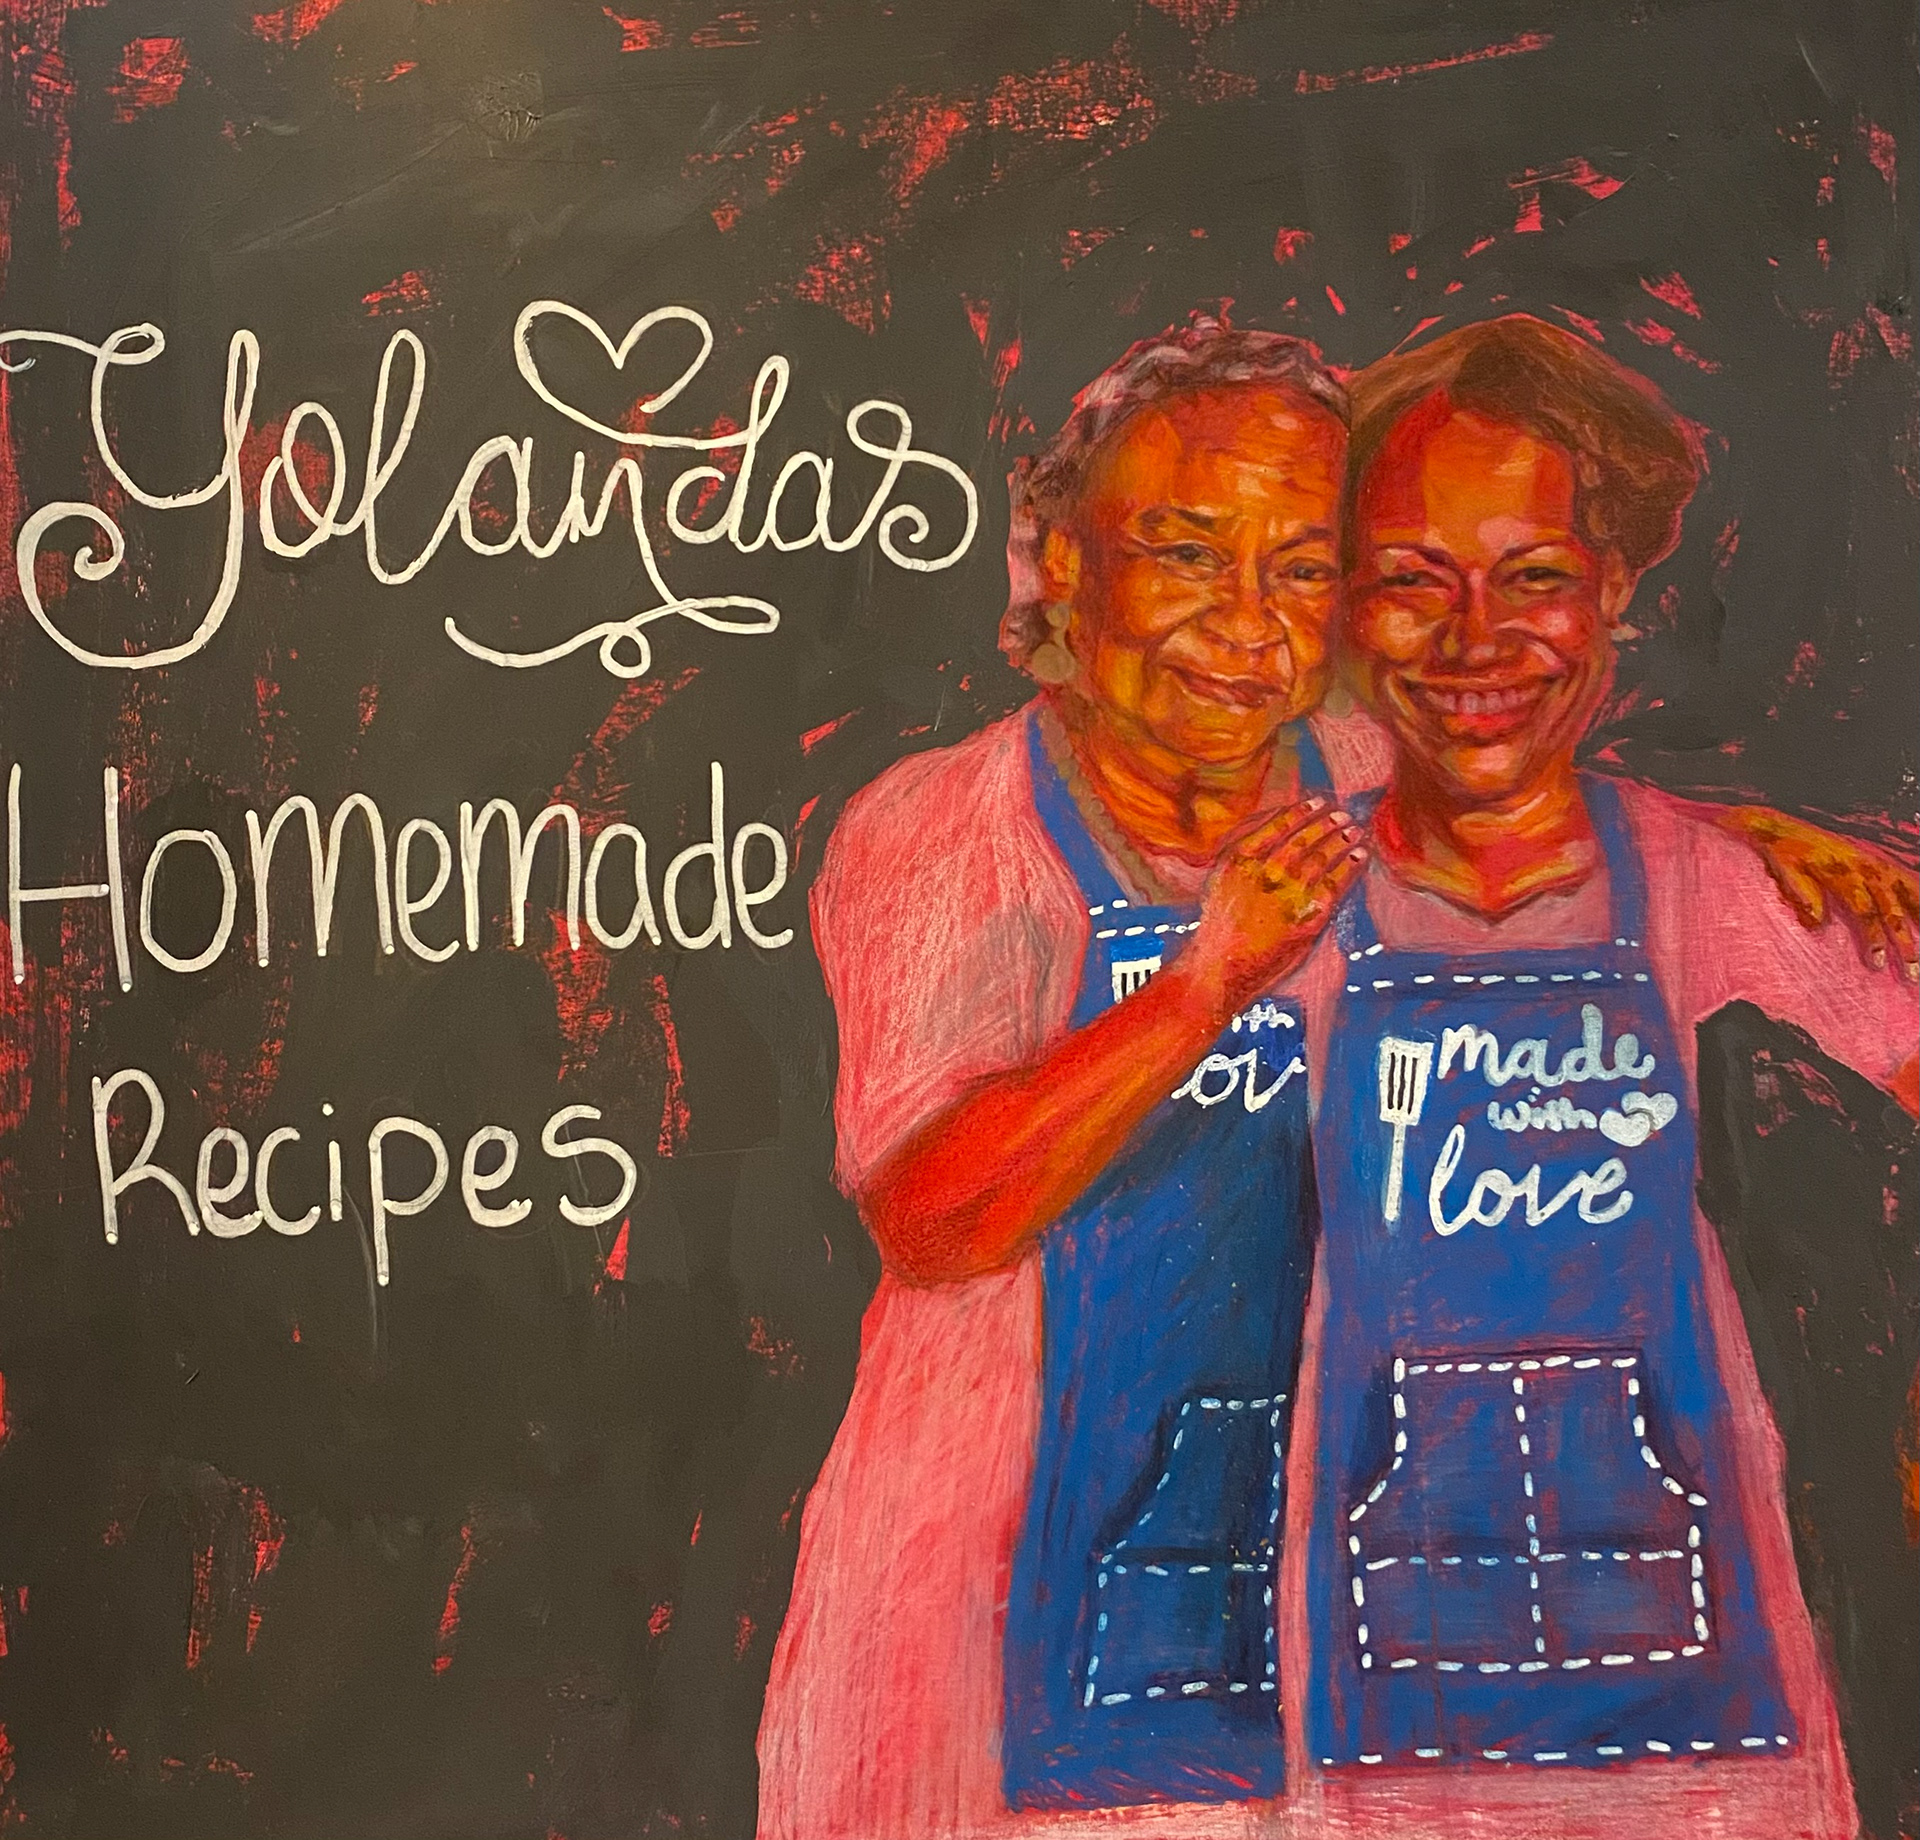 Yolandas
Homemade
Recipes
made
with
love